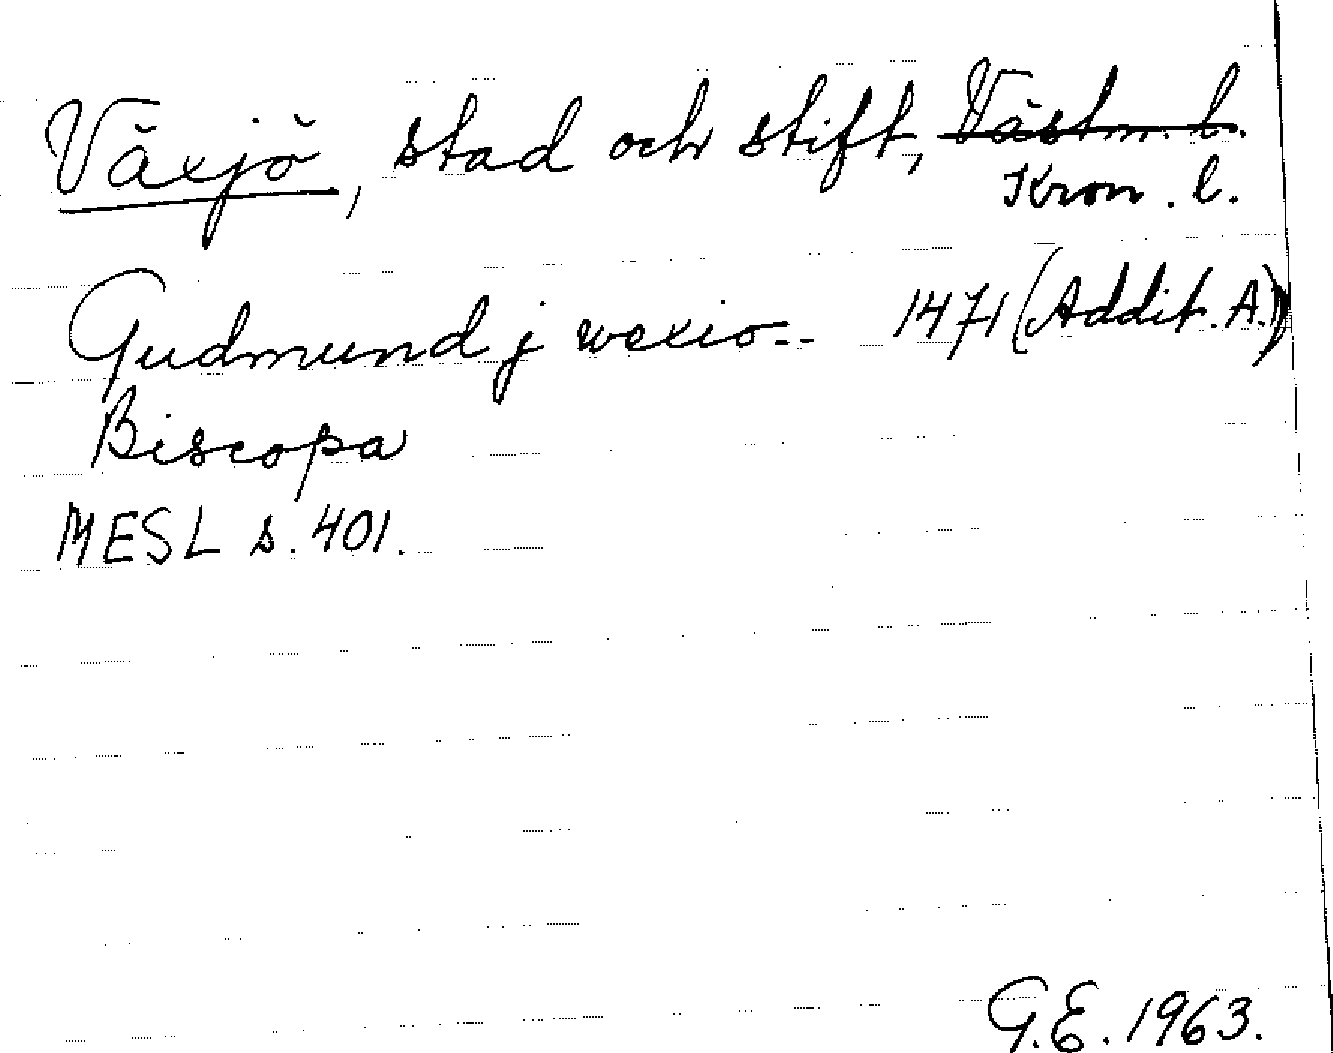 Växjö, stad och stift, Västm. l.
Kron. l.
Gudmund j wexio-- 1471 (Addit. A.)
Biscopa
MESL s. 401.
G.E. 1963.